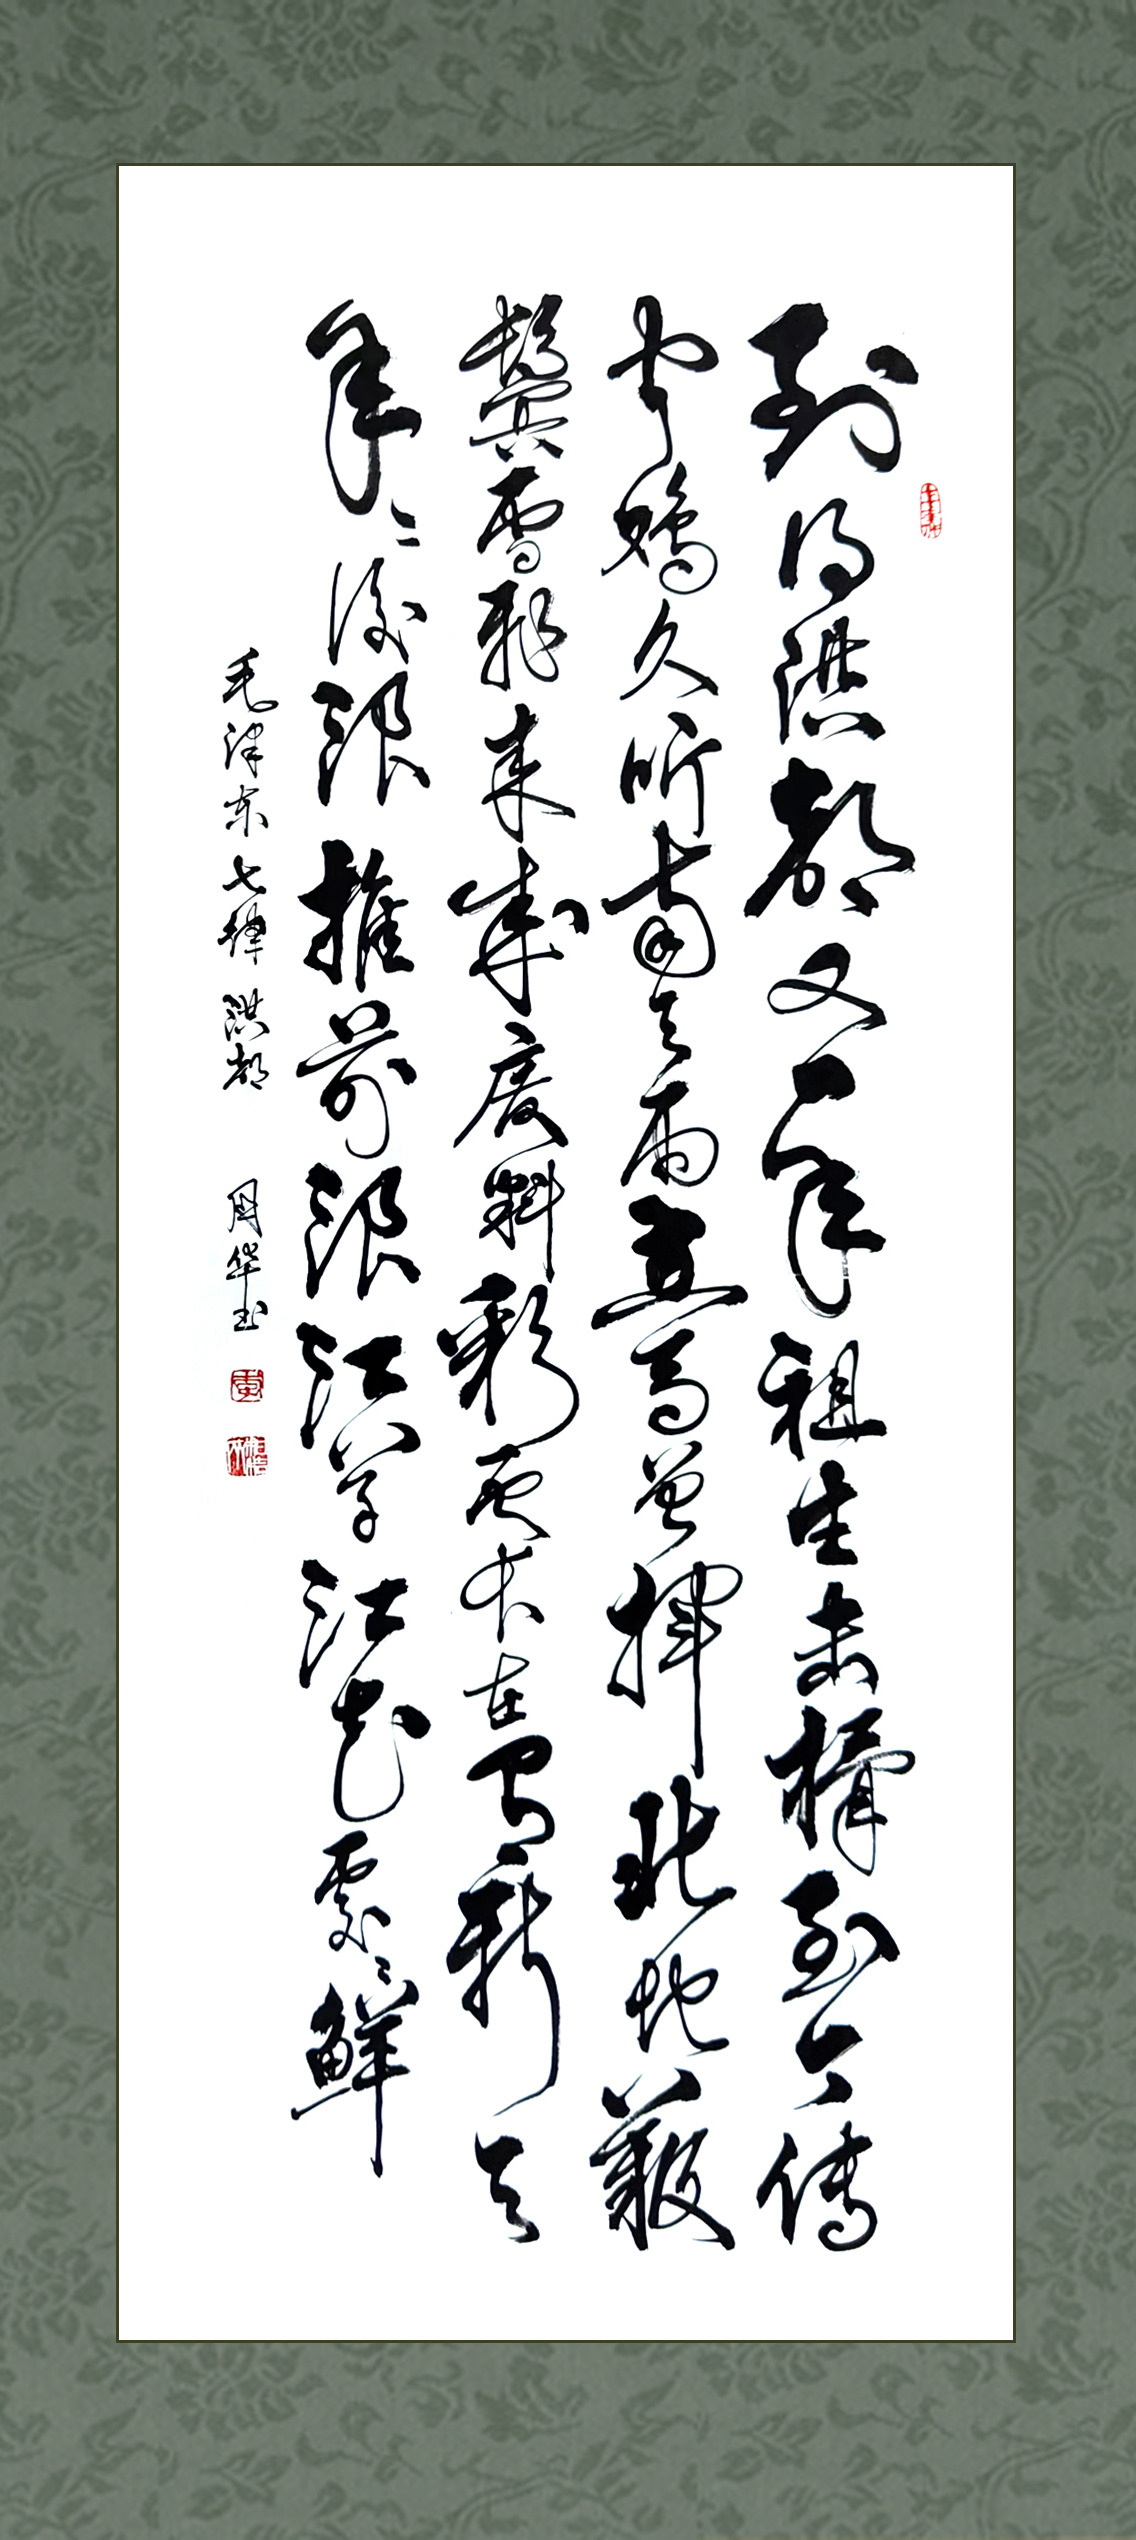 到得洪都又一年祖生击楫至今传
闻鸡久听南天雨立马曾挥北地鞭
鬓雪飛来成废料彩云长在有新天
年々後浪推前浪江草江花處々鲜
毛泽东七律 洪都 周华书